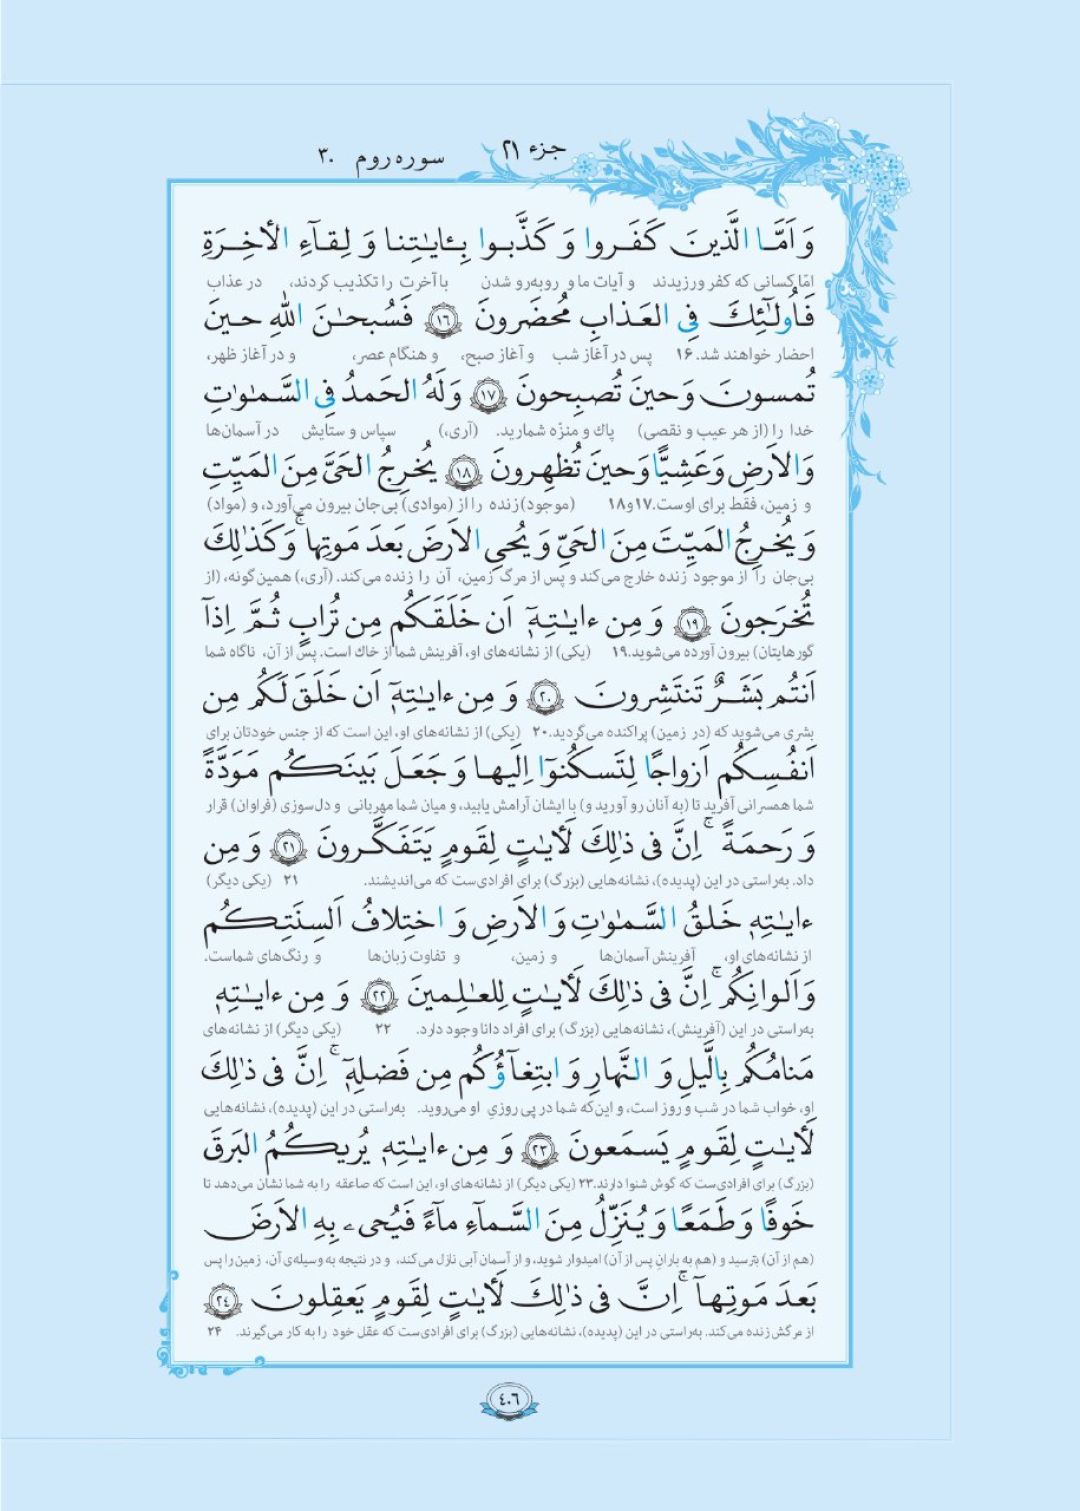 جزء ۲۱
سوره روم ۳۰
وَ اَمَّا الَّذینَ کَفَروا وَ کَذَّبوا بِـٔایـٰتِنا وَ لِقآءِ الأخِرَةِ
امّا کسانی که کفر ورزیدند و آیات ما و روبه‌رو شدن با آخرت را تکذیب کردند، در عذاب
فَاُولـٰٓئِکَ فِی العَذابِ مُحضَرونَ ﴿١٦﴾ فَسُبحـٰنَ اللهِ حینَ
احضار خواهند شد.۱۶ پس در آغاز شب و آغاز صبح، و هنگام عصر، و در آغاز ظهر،
تُمسونَ وَ حینَ تُصبِحونَ ﴿١٧﴾ وَ لَهُ الحَمدُ فِی السَّمـٰوٰتِ
خدا را (از هر عیب و نقصی) پاك و منزّه شمارید. (آری،) سپاس و ستایش در آسمان‌ها
وَ الاَرضِ وَ عَشِیًّا وَ حینَ تُظهِرونَ ﴿١٨﴾ یُخرِجُ الحَیَّ مِنَ المَیِّتِ
و زمین، فقط برای اوست.۱۷و۱۸ (موجود)زنده را از (موادی) بی‌جان بیرون می‌آورد، و (مواد)
وَ یُخرِجُ المَیِّتَ مِنَ الحَیِّ وَ یُحیِ الاَرضَ بَعدَ مَوتِها ۚ وَ کَذٰلِکَ
بی‌جان را از موجود زنده خارج می‌کند و پس از مرگ زمین، آن را زنده می‌کند. (آری،) همین‌گونه، (از
تُخرَجونَ ﴿١٩﴾ وَ مِن ءایـٰتِهٖٓ اَن خَلَقَکُم مِن تُرابٍ ثُمَّ اِذآ
گورهایتان) بیرون آورده می‌شوید.۱۹ (یکی) از نشانه‌های او، آفرینش شما از خاك است. پس از آن، ناگاه شما
اَنتُم بَشَرٌ تَنتَشِرونَ ﴿٢٠﴾ وَ مِن ءایـٰتِهٖٓ اَن خَلَقَ لَکُم مِن
بشری می‌شوید که (در زمین) پراکنده می‌گردید.۲۰ (یکی) از نشانه‌های او، این است که از جنس خودتان برای
اَنفُسِکُم اَزواجًا لِتَسکُنوٓا اِلَیها وَ جَعَلَ بَینَکُم مَوَدَّةً
شما همسرانی آفرید تا (به آنان رو آورید و) با ایشان آرامش یابید، و میان شما مهربانی و دل‌سوزی (فراوان) قرار
وَ رَحمَةً ۚ اِنَّ فی ذٰلِکَ لَأیـٰتٍ لِقَومٍ یَتَفَکَّرونَ ﴿٢١﴾ وَ مِن
داد. به‌راستی در این (پدیده)، نشانه‌هایی (بزرگ) برای افرادی‌ست که می‌اندیشند. ۲۱ (یکی دیگر)
ءایـٰتِهٖ خَلقُ السَّمـٰوٰتِ وَ الاَرضِ وَ اختِلافُ اَلسِنَتِکُم
از نشانه‌های او، آفرینش آسمان‌ها و زمین، و تفاوت زبان‌ها و رنگ‌های شماست.
وَ اَلوانِکُم ۚ اِنَّ فی ذٰلِکَ لَأیـٰتٍ لِلعـٰلِمینَ ﴿٢٢﴾ وَ مِن ءایـٰتِهٖ
به‌راستی در این (آفرینش)، نشانه‌هایی (بزرگ) برای افراد دانا وجود دارد. ۲۲ (یکی دیگر) از نشانه‌های
مَنامُکُم بِالَّیلِ وَ النَّهارِ وَ ابتِغآؤُکُم مِن فَضلِهٖٓ ۚ اِنَّ فی ذٰلِکَ
او، خواب شما در شب و روز است، و این‌که شما در پی روزیِ او می‌روید. به‌راستی در این (پدیده)، نشانه‌هایی
لَأیـٰتٍ لِقَومٍ یَسمَعونَ ﴿٢٣﴾ وَ مِن ءایـٰتِهٖ یُریکُمُ البَرقَ
(بزرگ) برای افرادی‌ست که گوش شنوا دارند.۲۳ (یکی دیگر) از نشانه‌های او، این است که صاعقه را به شما نشان می‌دهد تا
خَوفًا وَ طَمَعًا وَ یُنَزِّلُ مِنَ السَّمآءِ مآءً فَیُحیۦ بِهِ الاَرضَ
(هم از آن) بترسید و (هم به بارانِ پس از آن) امیدوار شوید، و از آسمان آبی نازل می‌کند، و در نتیجه به وسیله‌ی آن، زمین را پس
بَعدَ مَوتِهآ ۚ اِنَّ فی ذٰلِکَ لَأیـٰتٍ لِقَومٍ یَعقِلونَ ﴿٢٤﴾
از مرگش زنده می‌کند. به‌راستی در این (پدیده)، نشانه‌هایی (بزرگ) برای افرادی‌ست که عقل خود را به کار می‌گیرند. ۲۴
٤٠٦